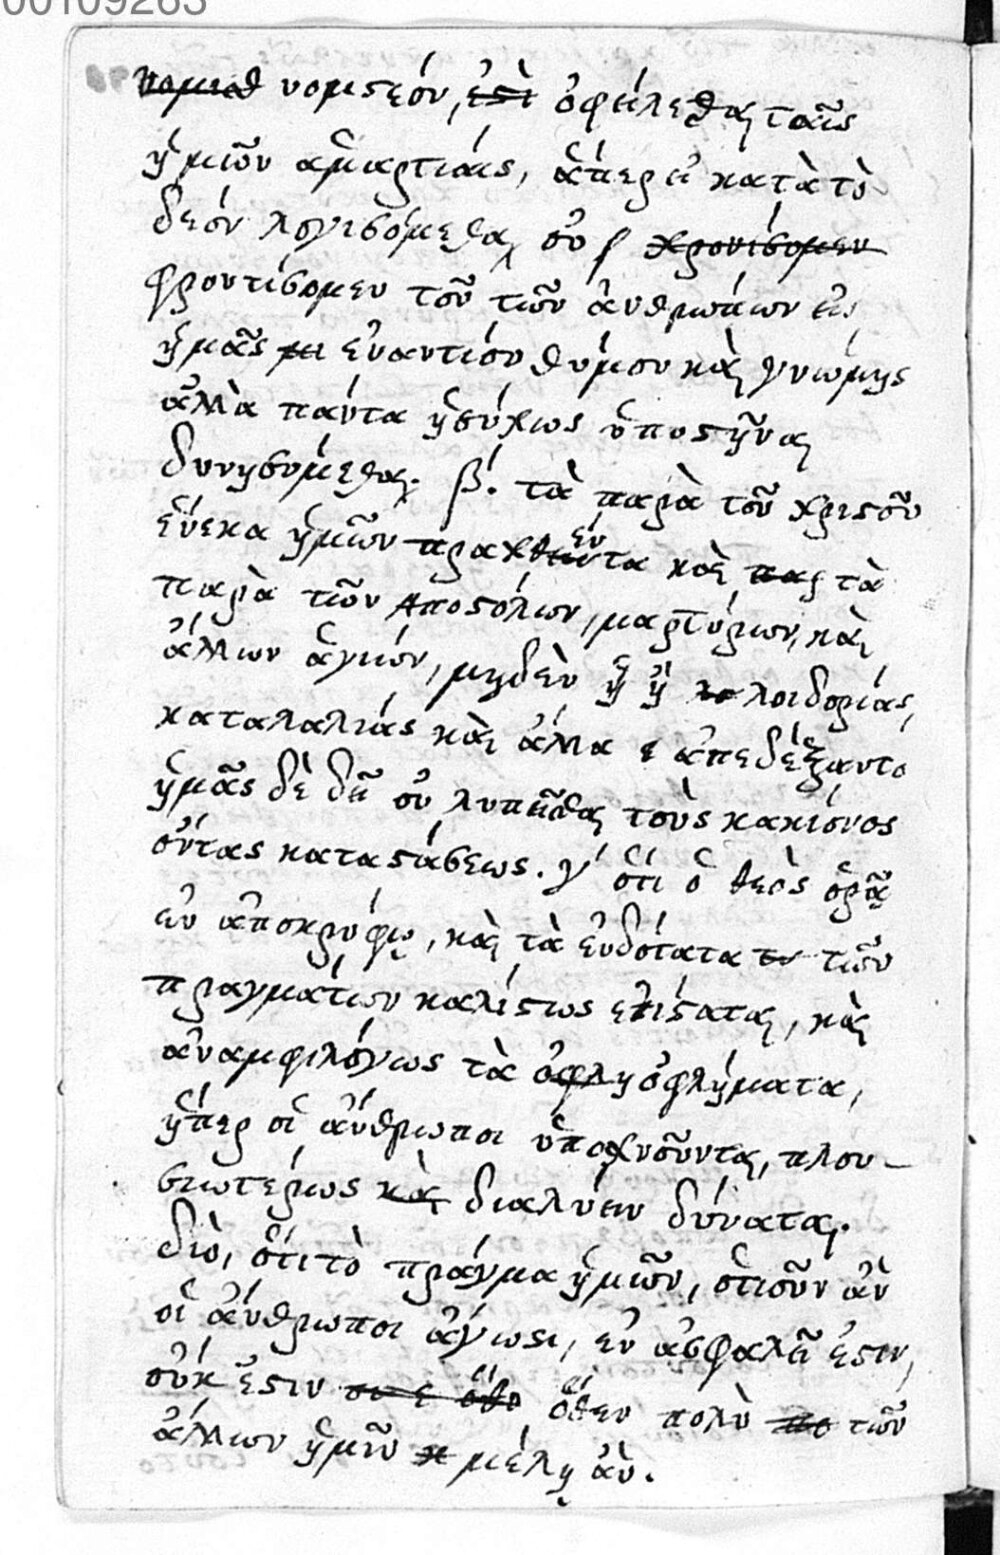 00109263
νομιςέον, ἐςὶ ὀφείλεσθαι ταῖς
ἡμῶν ἁμαρτίαις, ἅπερ εἰ κατὰ τὸ
δέον λογισόμεθα, οὐ χρονίσομεν
φροντίσομεν τοῦ τῶν ἀνθρώπων εἰς
ἡμᾶς ἐναντίου θύμου καὶ γνώμης
ἀλλὰ πάντα ἡσύχως ὑποςῆναι
δυνησόμεθα. β΄. τὰ παρὰ τοῦ χριςοῦ
ἕνεκα ἡμῶν πραχθέντα καὶ παρ τὰ
παρὰ τῶν Ἀποςόλων, μαρτύρων, καὶ
ἄλλων ἁγίων, μηδὲν λοιδορίας,
καταλαλιάς καὶ ἄλλα ἀπεδέξαντο
ἡμᾶς δὲ δεῖ οὐ λυπεῖσθαι τοὺς κακίονος
ὄντας καταςάσεως. γ΄ ὅτι ὁ θεὸς ὁρᾷ
ἐν ἀποκρύφῳ, καὶ τὰ ἐνδότατα τῶν
πραγμάτων καλίςως ἐπίςαται, καὶ
ἀναμφιλόγως τὰ ὀφλη ὀφλήματα,
ἥπερ οἱ ἄνθρωποι ὑποχνοῦνται, πλου-
σιωτέρως καὶ διαλύειν δύναται.
διὸ, ὅτι τὸ πράγμα ἡμῶν, ὁτιοῦν ἂν
οἱ ἄνθρωποι ἄγωσι, ἐν ἀσφαλεῖ ἐςιν,
οὐκ ἔςιν ὅθεν πολὺ τῶν
ἄλλων ἡμῖν μέλῃ ἂν.